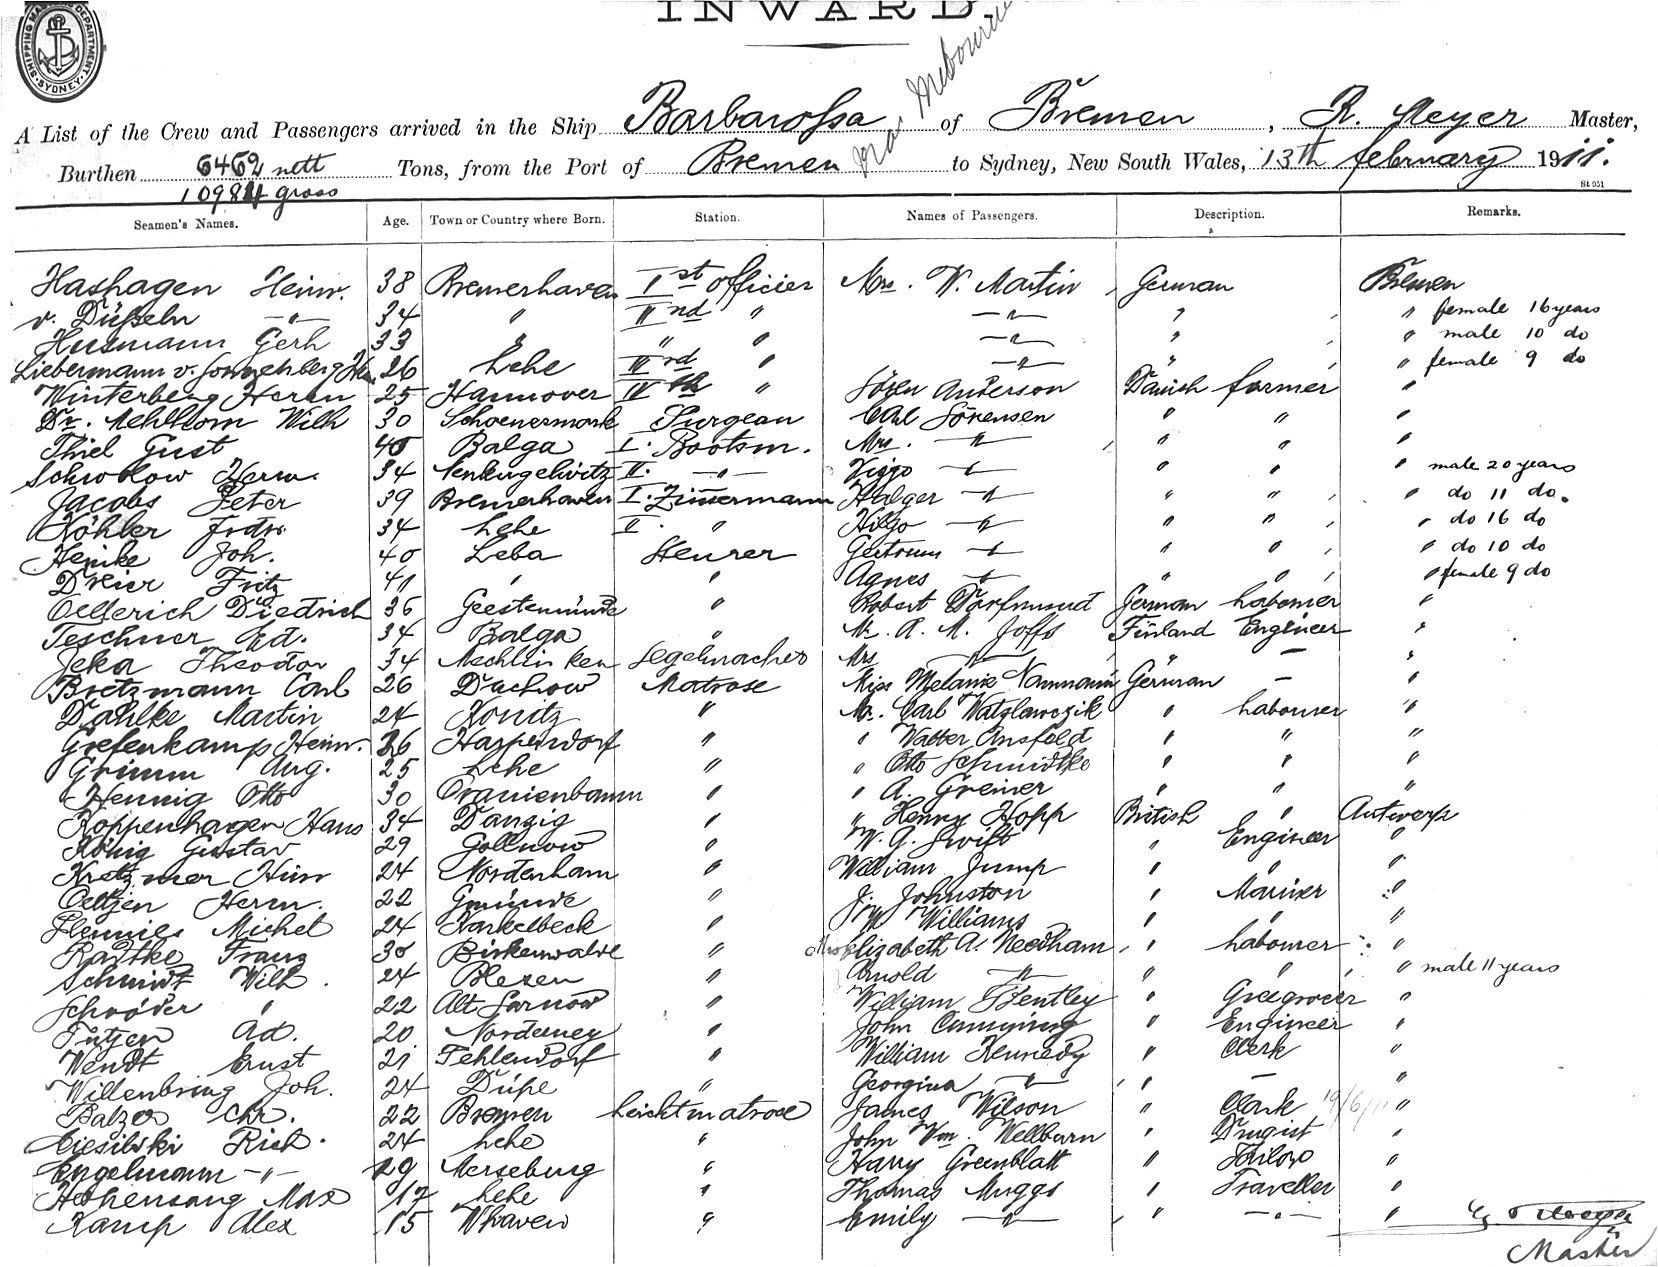 INWARD.
SHIPPING MASTER'S DEPARTMENT. SYDNEY
via Melbourne
A List of the Crew and Passengers arrived in the Ship Barbarossa of Bremen, R. Meyer Master,
Burthen 6462 nett Tons, from the Port of Bremen to Sydney, New South Wales, 13th february 1911.
10984 gross
St 951
Seamen's Names. Age. Town or Country where Born. Station. Names of Passengers. Description. Remarks.
Hashagen Heinr. 38 Bremerhaven Ist officier Mrs. W. Martin, German Bremen
v. Düßeln -"- 34 " IInd " -"- " , " female 16 years
Husmann Gerh 33 " " " -"- " , " male 10 do
Liebermann v. 26 Lehe IIIrd " -"- " , " female 9 do
Winterberg Herm 25 Hannover IVth " Sören Anderson Danish farmer "
Dr. Wilh 30 Schoenermark Surgeau Carl Sörensen " " "
Thiel Gust 40 Balga I. Bootsm. Mrs. -"- , " " "
Herm. 34 II. -"- Viggo -"- " " , " male 20 years
Jacobs Peter 39 Bremerhaven I. Zimmermann Holger -"- " " , " do 11 do.
Köhler Frdr. 34 Lehe II. " -"- " " , " do 16 do
Henike Joh. 40 Leba Steurer -"- " " , " do 10 do
Dreier Fritz 41 " " Agnes -"- " " , " female 9 do
Oellerich Diedrich 36 Geestemünde " Robert German labourer "
Teschner Ed. 34 Balga " Mr. A. M. Joffs Finland Engineer "
Jeka Theodor 34 Mechlinken Segelmacher Mrs -"- , " - "
Bretzmann Carl 26 Duchow Matrose Miss Melanie Naumann German - "
Dahlke Martin 24 Konitz " Mr. Carl Watzlawczik " labourer "
Grefenkamp Heinr. 26 Harpendorf " " Walter Ansfeldt " " "
Grimm Aug. 25 Lehe " " Otto Schmidtke " " "
Hennig Otto 30 Oranienbaum " " A. Greiner " " "
Koppenhagen Hans 34 Danzig " " Henry Hopp British " Antwerp
König Gustav 29 Gollnow " W. G. Swift " Engineer "
Kretzmer Hinr 24 Nordenham " William Jump " " "
Oeltjen Herm. 22 Gmünde " J. Johnston " Mariner "
Michel 24 " W Williams " " "
Radtke Franz 30 Birkenwalde " Mrs Elizabeth A. Needham , " labourer "
Schmidt Wilh. 24 Blexen " Arnold -"- " " , " male 11 years
Schröder " 22 Alt Sarnow " William Bentley " Greegrocer "
Tütjen Ad. 20 Norderney " John Cumming " Engineer "
Wendt Ernst 21 Fehlendorf " William Kennedy " Clerk "
Willenbring Joh. 24 Düpe " Georgina -"- , " - "
Balzer Chr. 22 Bremen Leichtmatrose James Wilson " Clark 19/6/11 "
Ciesilski Rich. 24 Lehe " John Wm. Wellburn " Drugist "
Engelmann -"- 29 Merseburg " Harry Greenblatt " "
Hohensang Max 17 Lehe " Thomas Muggs " Traveller "
Kamp Alex 15 W'haven " Emily -"- , " -"- "
Master